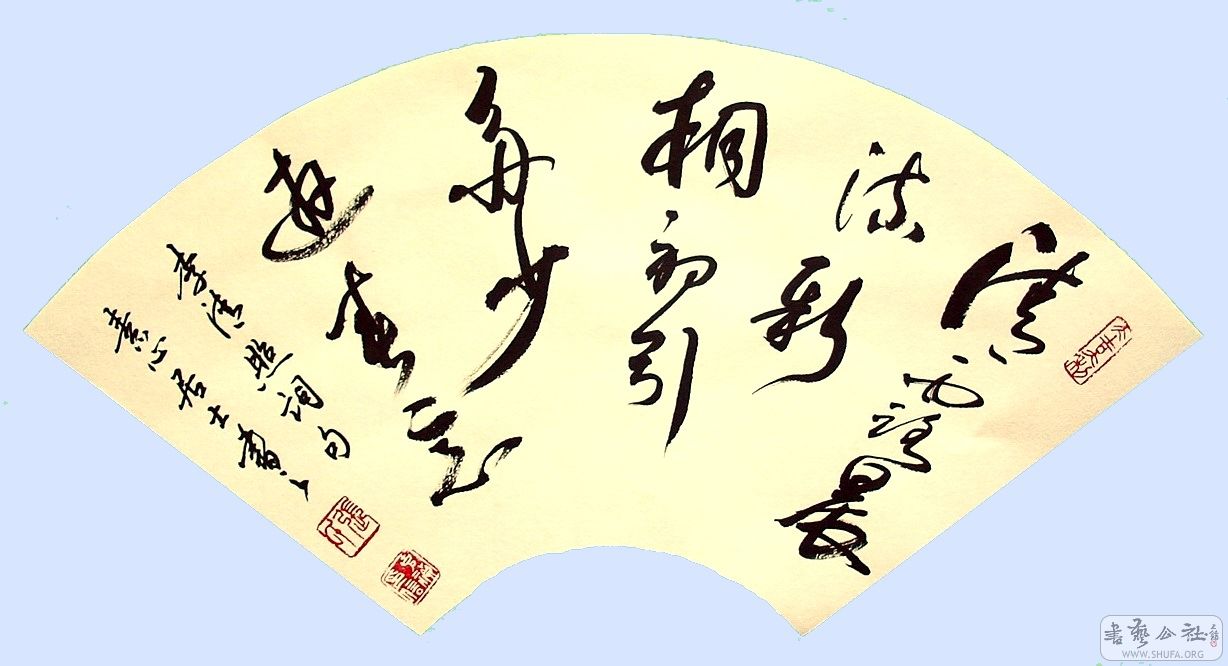 清露晨
流新
桐初引
多少
遊春意
李清照詞句
素心居士
書藝公社
WWW.SHUFA.ORG